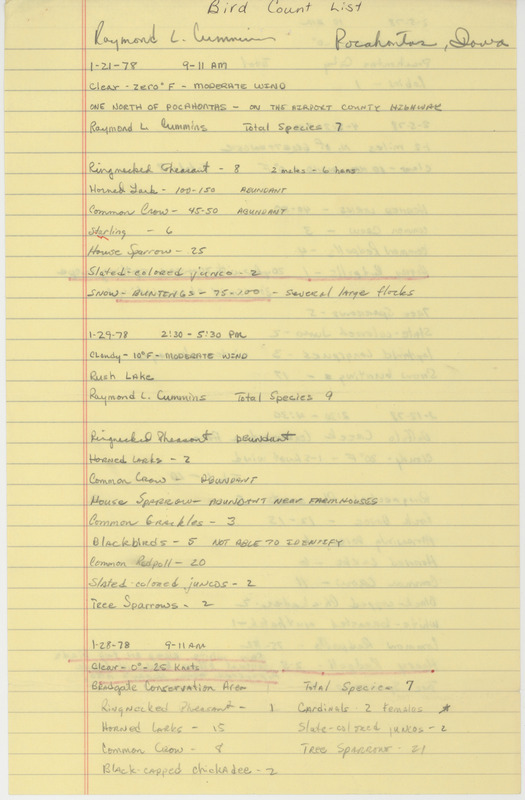 Bird Count List
Raymond L. Cummins Pocahontas, Iowa
1-21-78 9-11 AM
Clear - zero° F - MODERATE WIND
ONE NORTH OF POCAHONTAS - ON THE AIRPORT COUNTY HIGHWAY
Raymond L Cummins Total Species 7
Ringnecked Pheasant - 8 2 males - 6 hens
Horned Lark - 100-150 ABUNDANT
Common Crow - 45-50 ABUNDANT
Starling - 6
House Sparrow - 25
Slated-colored junco - 2
SNOW-BUNTINGS - 75-100 - several large flocks
1-29-78 2:30 - 5:30 PM
Cloudy - 10°F - MODERATE WIND
Rush Lake
Raymond L. Cummins Total Species 9
Ringnecked Pheasant abundant
Horned Larks - 2
Common Crow - ABUNDANT
House Sparrow - ABUNDANT NEAR FARMHOUSES
Common Grackles - 3
Blackbirds - 5 NOT ABLE TO IDENTIFY
Common Redpoll - 20
Slated-colored juncos - 2
Tree Sparrows - 2
1-28-78 9-11 AM
Clear - 0° - 25 Knots
Conservation Area Total Species 7
Ringnecked Pheasant - 1 Cardinals 2 females *
Horned Larks - 15 Slate-colored juncos - 2
Common Crow - 8 Tree Sparrows - 21
Black-capped chickadee - 2